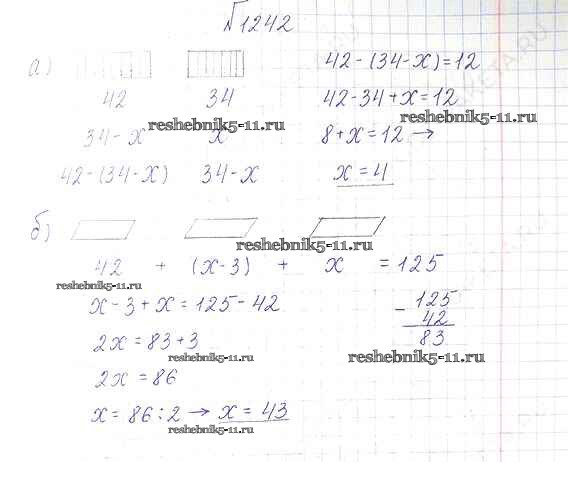 №1242
а)
42 34
42-(34-x)=12
42-34+x=12
reshebnik5-11.ru
34-x x
8+x=12 →
42-(34-x) 34-x
x=4
б)
reshebnik5-11.ru
42 + (x-3) + x = 125
reshebnik5-11.ru
x-3+x=125-42
-125
42
83
2x=83+3
reshebnik5-11.ru
reshebnik5-11.ru
2x=86
x=86:2 → x=43
reshebnik5-11.ru